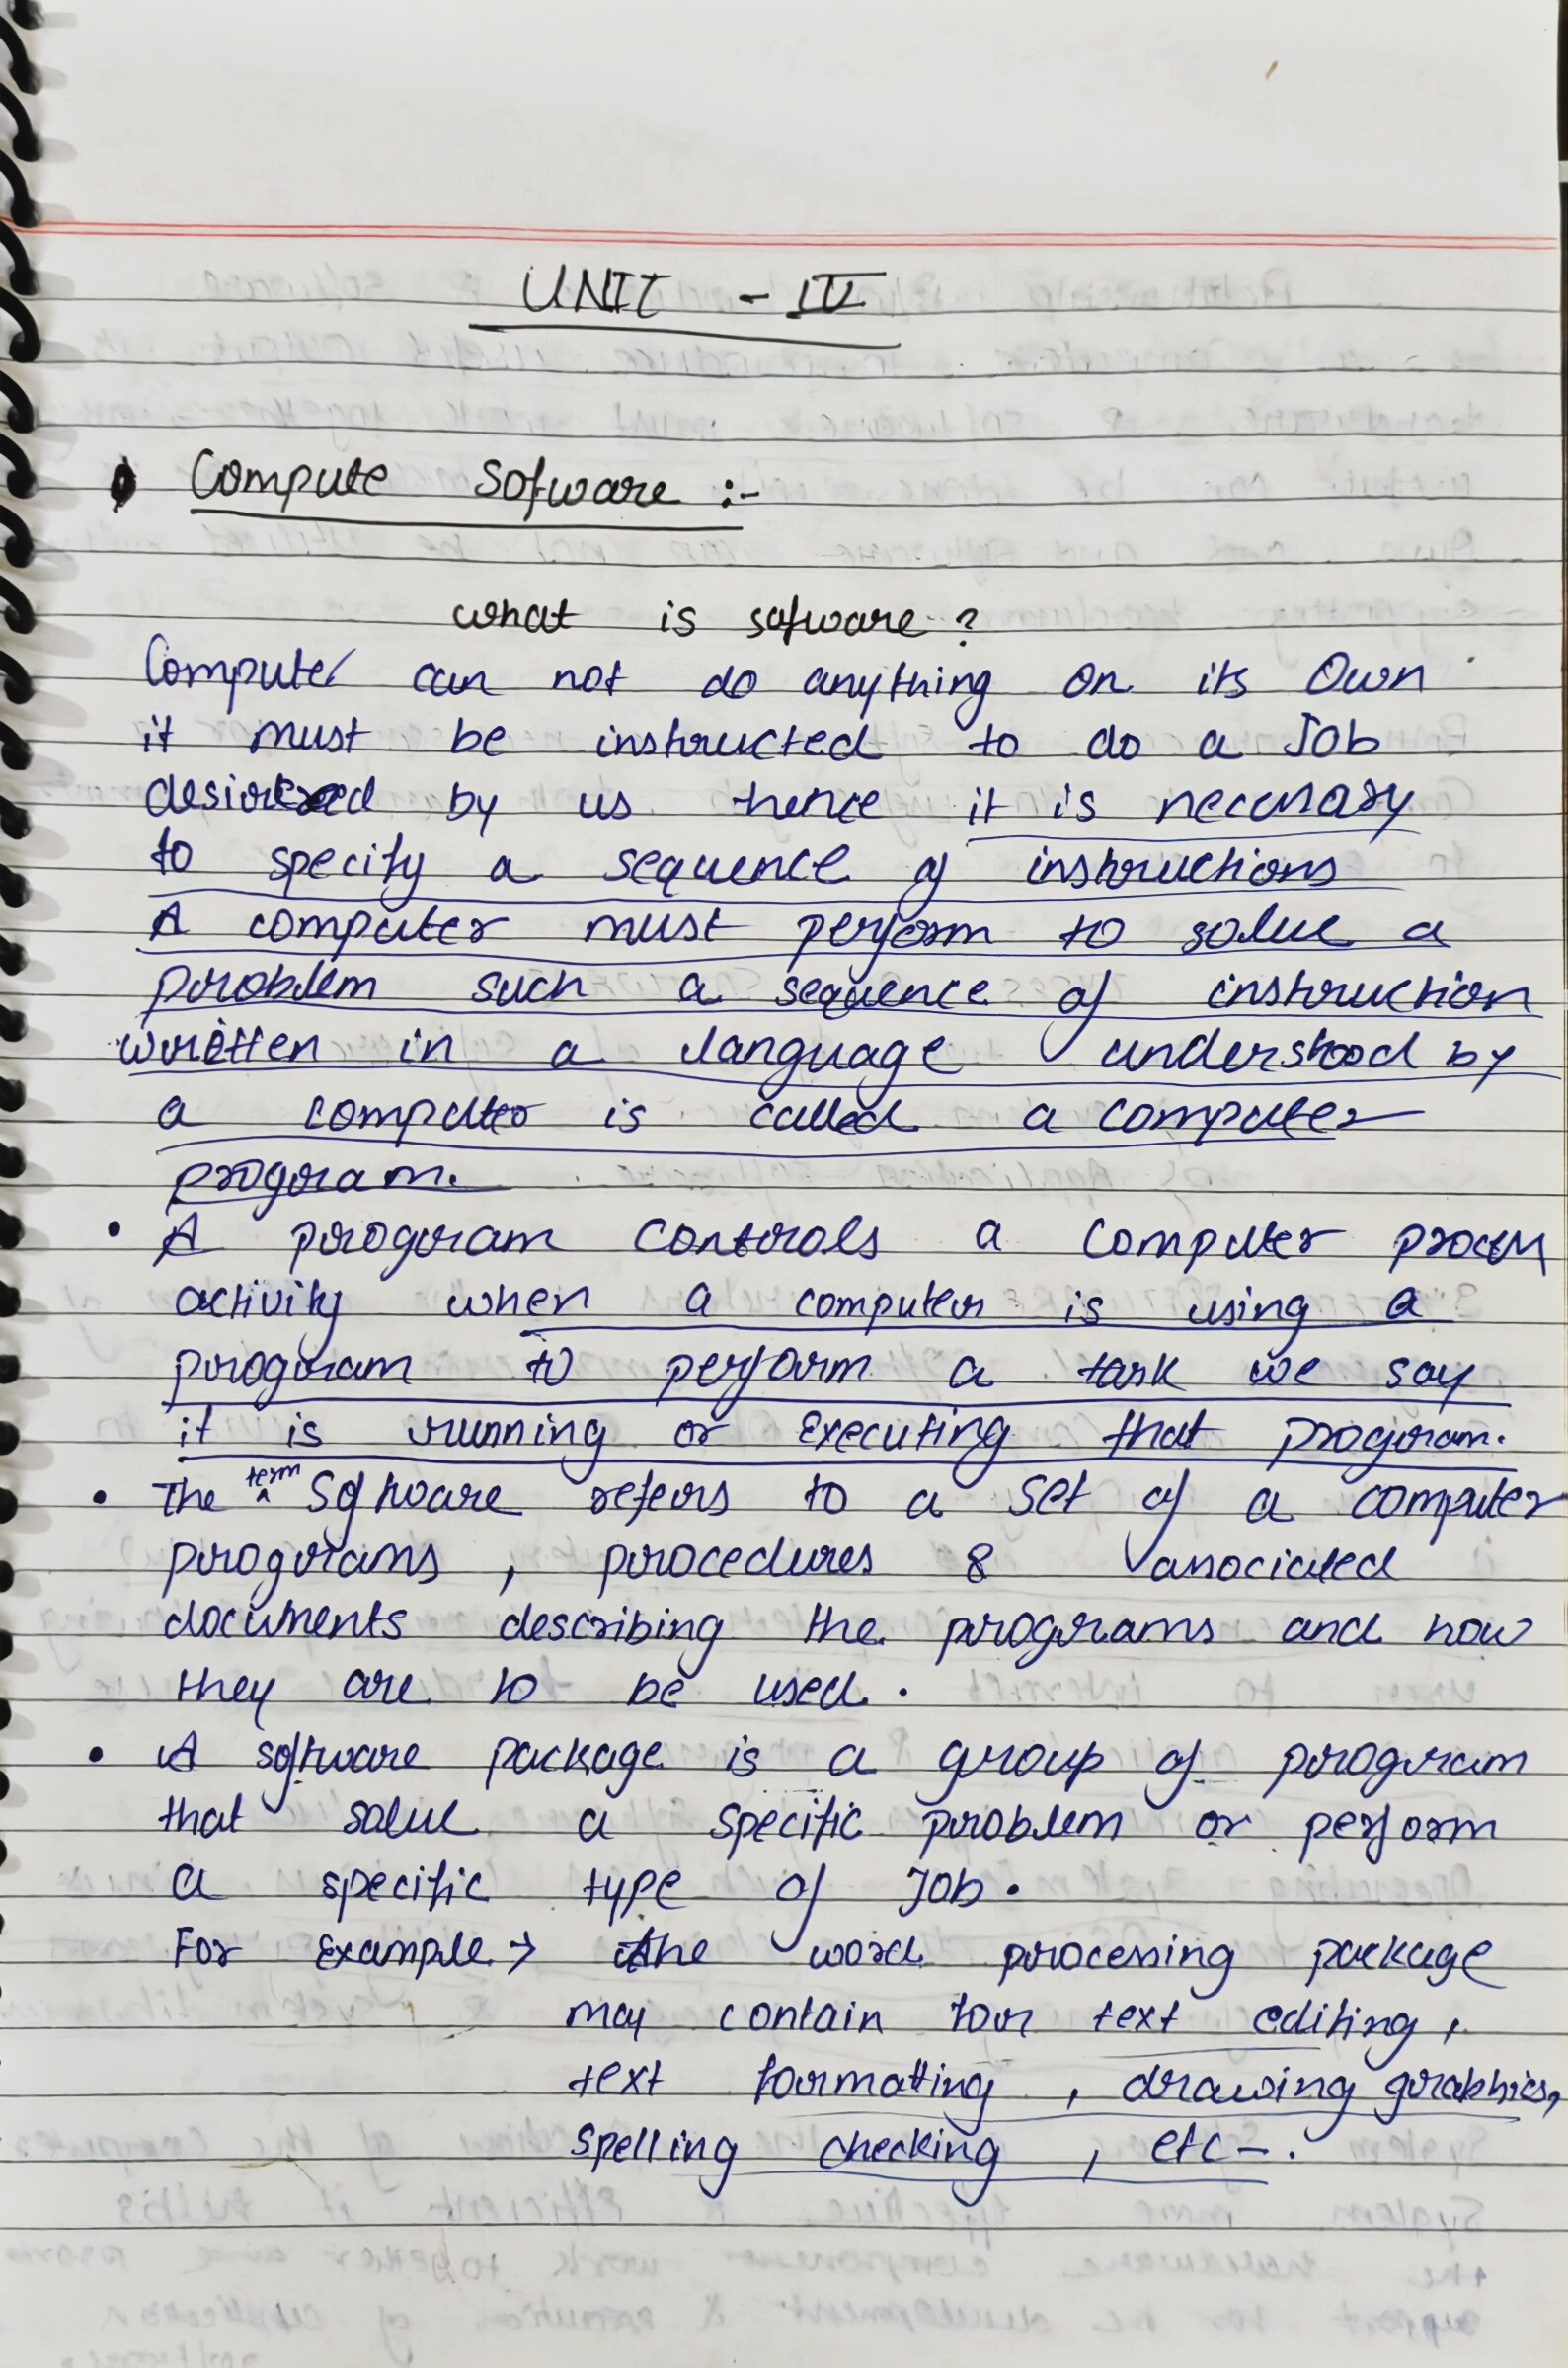 UNIT - IV
Compute Sofware :-
what is sofware ?
Computer can not do anything on its Own
it must be instructed to do a Job
desired by us hence it is necessary
to specify a sequence of instructions
A computer must perform to solve a
problem such a sequence of instruction
written in a language understood by
a computer is called a computer
program.
• A program controls a Computer process
activity when a computer is using a
program to perform a task we say
it is running or executing that program.
• The term Software refers to a set of a computer
programs , procedures & associated
documents describing the programs and how
they are to be used .
• A software package is a group of program
that solve a specific problem or perform
a specific type of Job .
For Example → the word processing package
may contain for text editing ,
text formatting , drawing graphics,
spelling checking , etc - .